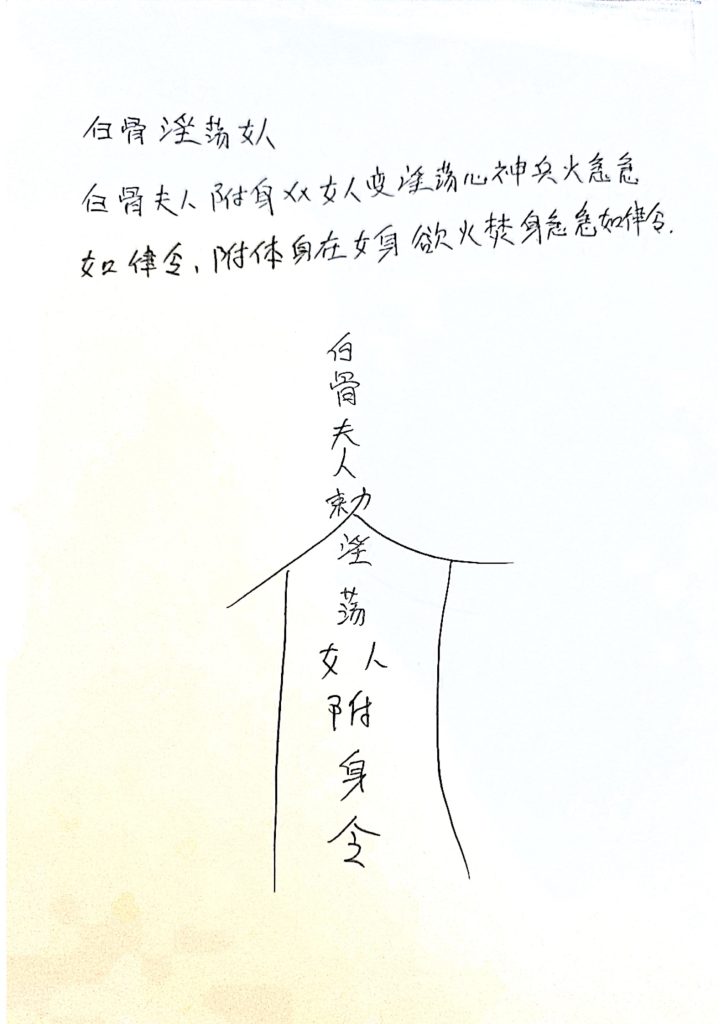 白骨淫荡女人
白骨夫人附身XX女人变淫荡心神兵火急急
如律令、附体身在女身欲火焚身急急如律令.
白
骨
夫
人
勅
淫
荡
女人
附
身
令